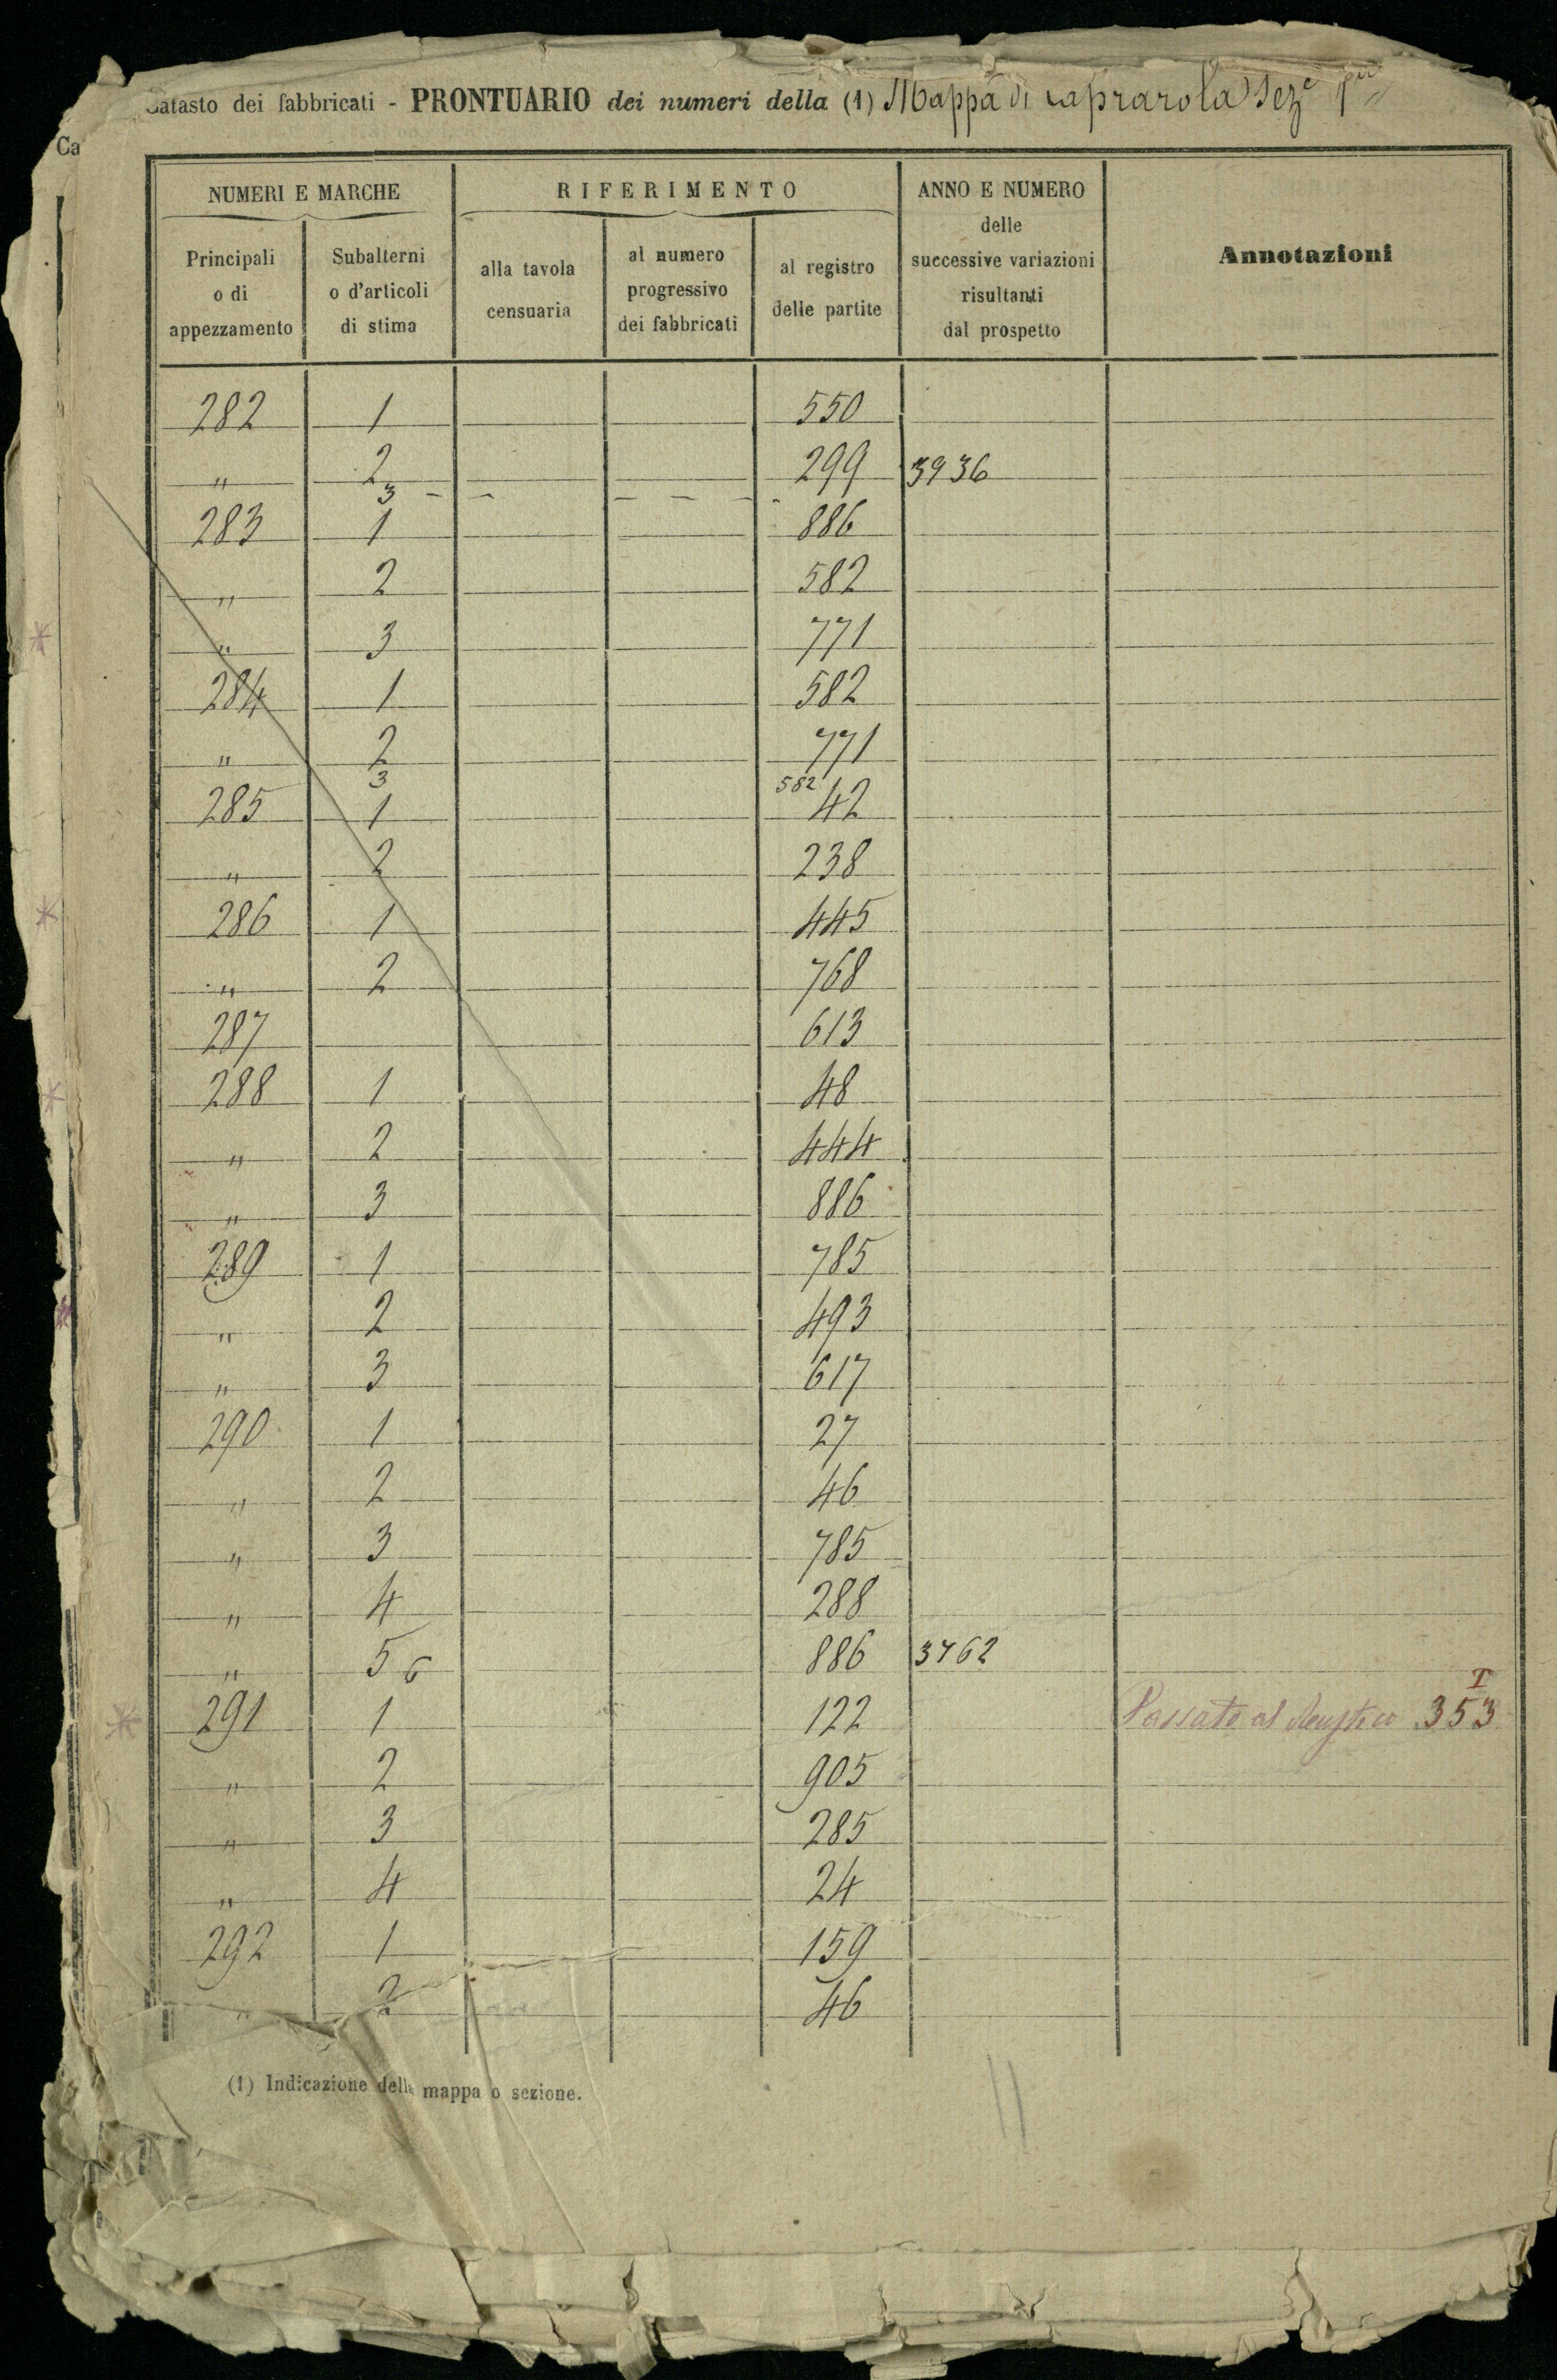 Catasto dei fabbricati - PRONTUARIO dei numeri della (1) Mappa di Caprarola Seze 1a
Ca
NUMERI E MARCHE
RIFERIMENTO
ANNO E NUMERO
delle
successive variazioni
risultanti
dal prospetto
Annotazioni
Principali
o di
appezzamento
Subalterni
o d'articoli
di stima
alla tavola
censuaria
al numero
progressivo
dei fabbricati
al registro
delle partite
282 1 550
" 2 299 3936
3 - - - - - -
283 1 886
" 2 582
" 3 771
284 1 582
" 2 771
3 582
285 1 42
" 2 238
286 1 445
" 2 768
287 613
288 1 48
" 2 444
" 3 886
289 1 785
" 2 493
" 3 617
290 1 27
" 2 46
" 3 785
" 4 288
" 5 6 886 3762
291 1 122 Passato al Rustico 353 I
" 2 905
" 3 285
" 4 24
292 1 159
" 2 46
(1) Indicazione della mappa o sezione.